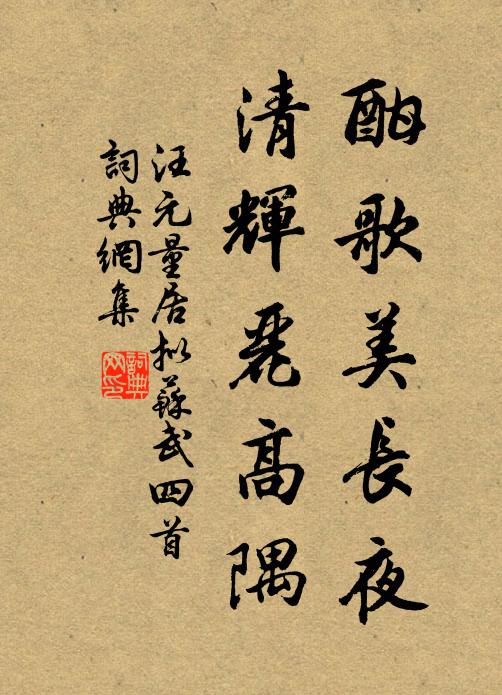 酣歌美長夜
清輝麗高隅
汪元量居擬蘇武四首
詞典網集
詞典
网印